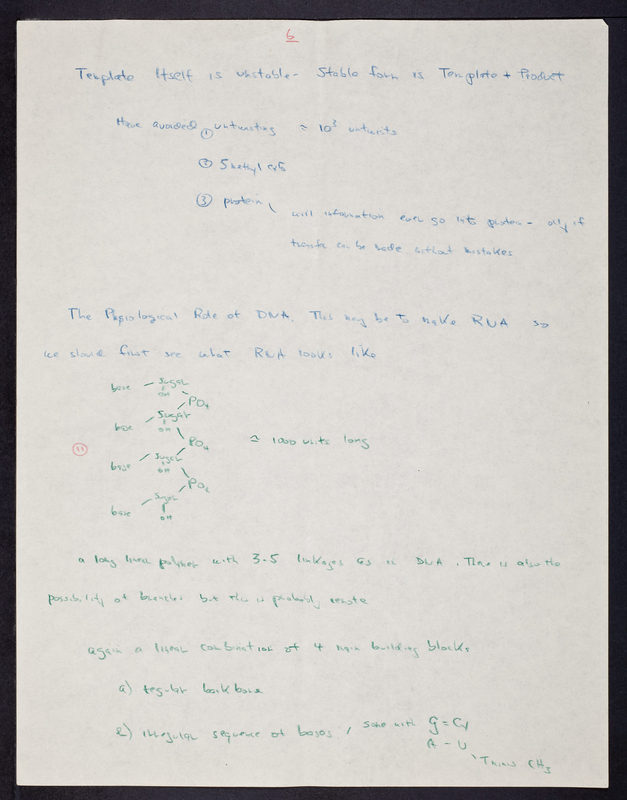 6
Template Itself is unstable - Stable form is Template + Product
Have avoided ① untwisting ≈ 10³ untwists
② 5 methyl cyt
③ protein
will information ever go into protein - only if
transfer can be made without mistakes
The Physiological Role of DNA. This may be to make RNA so
we should first see what RNA looks like
base - Sugar
OH
PO4
base - Sugar
OH
PO4
⑪ ≈ 1000 units long
base - Sugar
OH
PO4
base - Sugar
OH
a long linear polymer with 3-5 linkages as in DNA. There is also the
possibility of branches but this is probably remote
again a linear combination of 4 main building blocks
a) regular backbone
2) irregular sequence of bases, some with G = Cy
A - U
Thus CH3